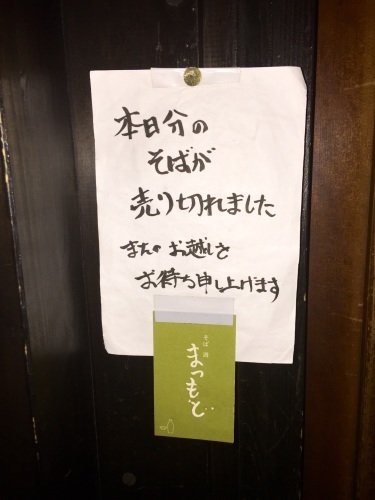 本日分の
そばが
売り切れました
またの お越しを
お待ち申し上げます
そば 酒
まつもと